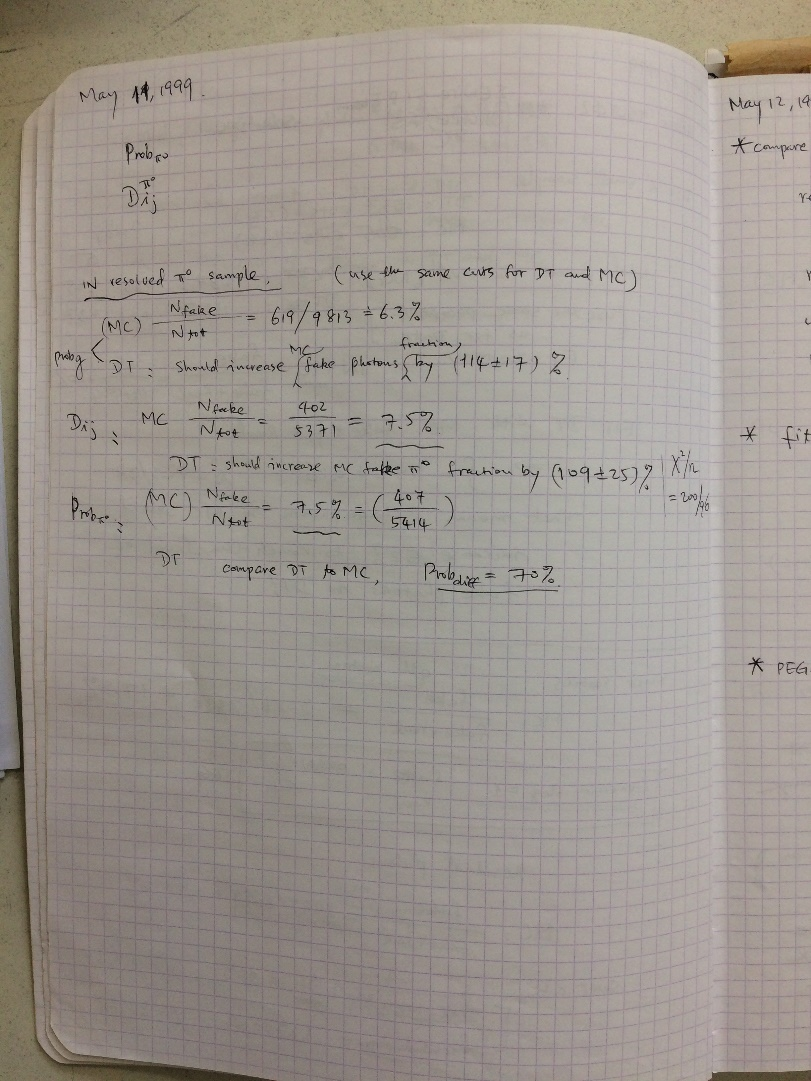 May 11, 1999.
Prob π⁰
Dij π⁰
IN resolved π⁰ sample. (use the same cuts for DT and MC)
(MC) Nfake/Ntot = 619/9813 = 6.3%
probg
DT : should increase MC fake photons fraction by (114±17) %
Dij : MC Nfake/Ntot = 402/5371 = 7.5%
DT : should increase MC fake π⁰ fraction by (109±25)% χ²/n = 200/96
Prob π⁰ : (MC) Nfake/Ntot = 7.5% = (407/5414)
DT compare DT to MC, Prob diff = 70%.
May 12, 19
* compare
* fit
* PEG